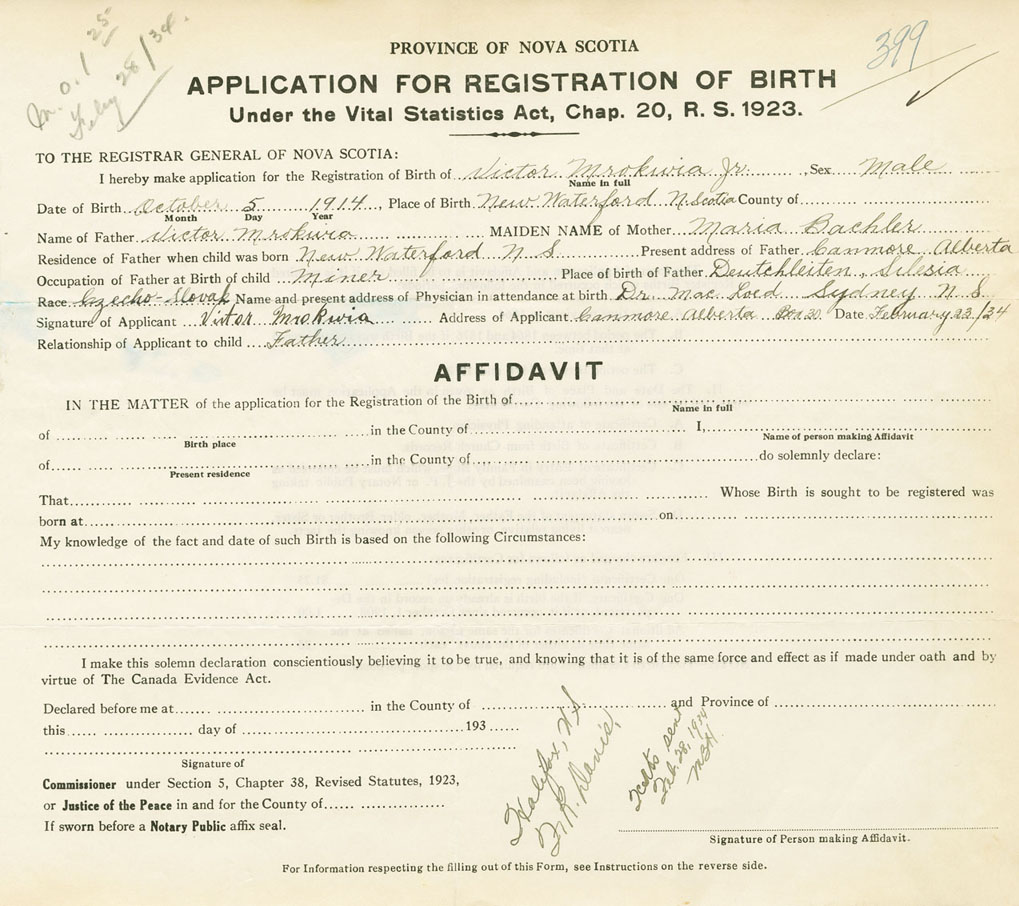 m. o. 1 25
Feby 28/34.
399
PROVINCE OF NOVA SCOTIA
APPLICATION FOR REGISTRATION OF BIRTH
Under the Vital Statistics Act, Chap. 20, R. S. 1923.
TO THE REGISTRAR GENERAL OF NOVA SCOTIA:
I hereby make application for the Registration of Birth of Victor Mrokwia Jr. Sex Male
Name in full
Date of Birth October 5 1914, Place of Birth New Waterford N. Scotia County of
Month Day Year
Name of Father Victor Mrokwia MAIDEN NAME of Mother Maria Bachler
Residence of Father when child was born New Waterford N S Present address of Father Canmore Alberta
Occupation of Father at Birth of child Miner Place of birth of Father Deutchleiten, Silesia
Race Czecho-Slovak Name and present address of Physician in attendance at birth Dr. Mac Loed Sydney N. S
Signature of Applicant Victor Mrokwia Address of Applicant Canmore Alberta Box 30 Date February 23/34
Relationship of Applicant to child Father
AFFIDAVIT
IN THE MATTER of the application for the Registration of the Birth of
Name in full
of in the County of I,
Birth place Name of person making Affidavit
of in the County of do solemnly declare:
Present residence
That Whose Birth is sought to be registered was
born at on
My knowledge of the fact and date of such Birth is based on the following Circumstances:
I make this solemn declaration conscientiously believing it to be true, and knowing that it is of the same force and effect as if made under oath and by
virtue of The Canada Evidence Act.
Declared before me at in the County of and Province of
this day of 193
Signature of
Commissioner under Section 5, Chapter 38, Revised Statutes, 1923,
or Justice of the Peace in and for the County of
If sworn before a Notary Public affix seal.
Halifax, N S
Davis,
sent
Feb. 28, 1934
Signature of Person making Affidavit.
For Information respecting the filling out of this Form, see Instructions on the reverse side.